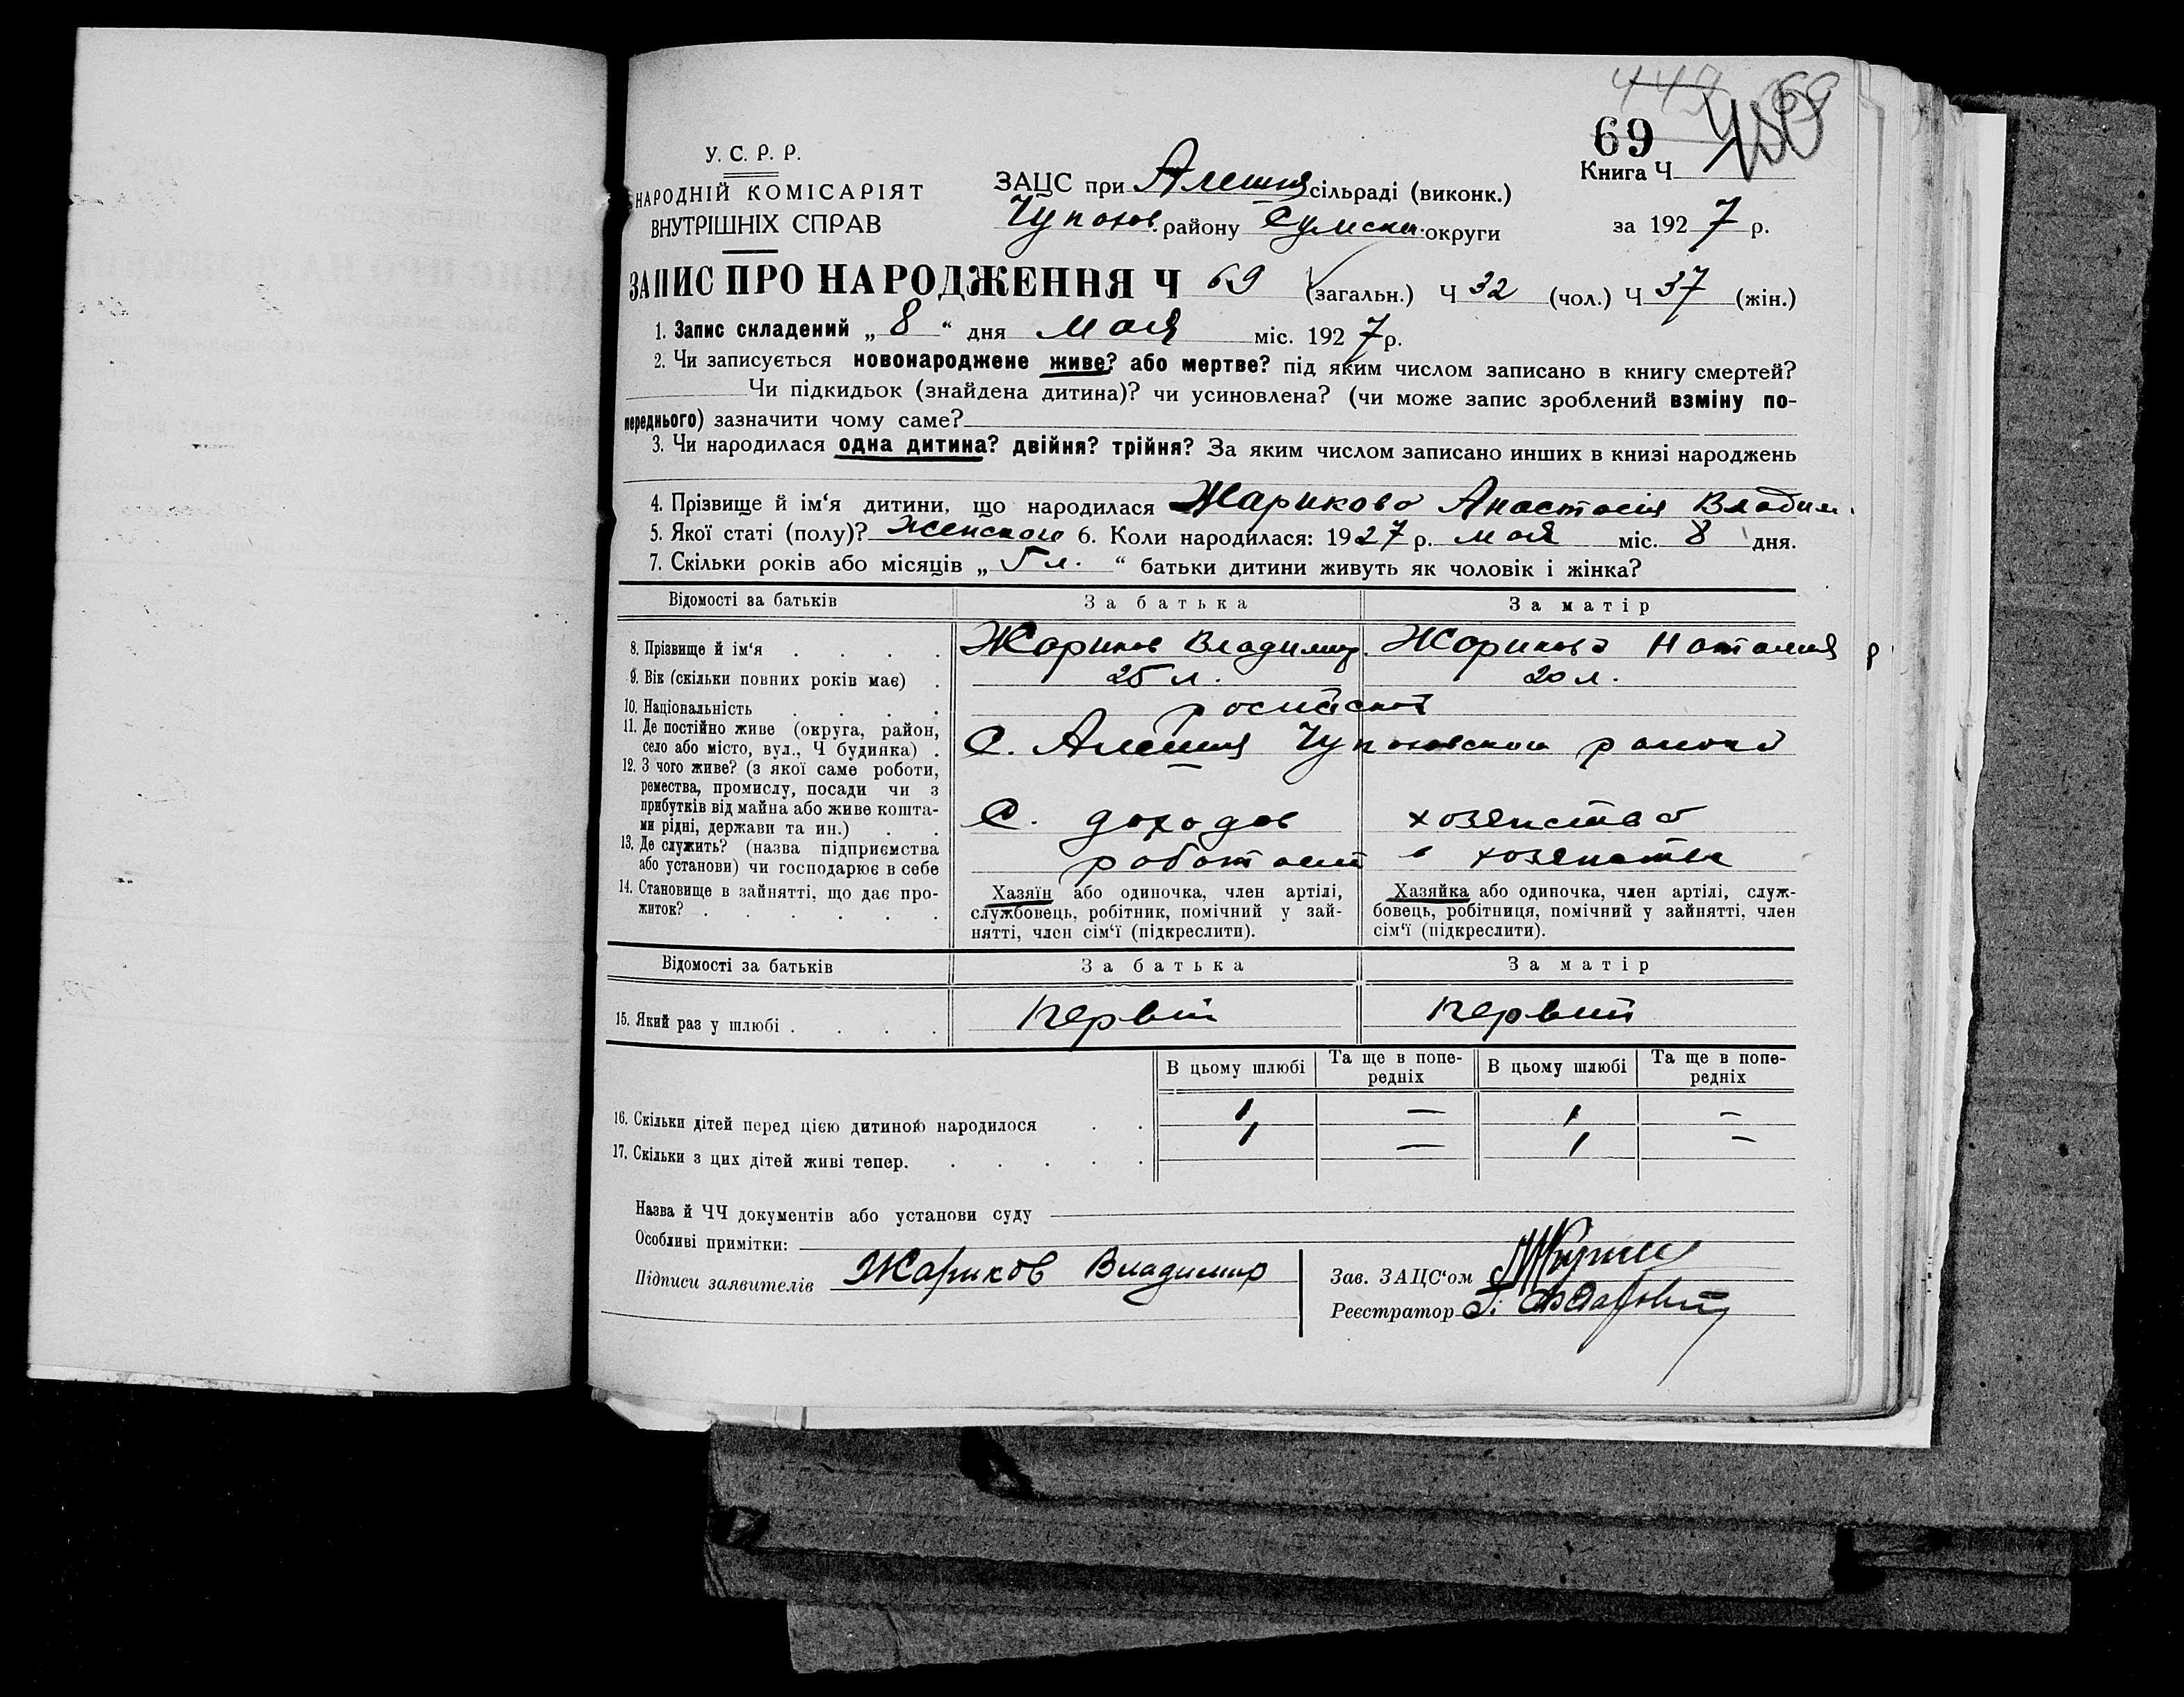 449 69
69
У. С. Р. Р.
НАРОДНІЙ КОМІСАРІЯТ
ВНУТРІШНІХ СПРАВ
ЗАЦС при Алешня сільраді (виконк.)
Чупахов. району Сумськ. округи
Книга Ч
за 1927 р.
ЗАПИС ПРО НАРОДЖЕННЯ Ч 69 (загальн.) Ч 32 (чол.) Ч 37 (жін.)
1. Запис складений „ 8 “ дня мая міс. 1927 р.
2. Чи записується новонароджене живе? або мертве? під яким числом записано в книгу смертей?
Чи підкидьок (знайдена дитина)? чи усиновлена? (чи може запис зроблений взміну по-
переднього) зазначити чому саме?
3. Чи народилася одна дитина? двійня? трійня? За яким числом записано инших в книзі народжень
4. Прізвище й ім‘я дитини, що народилася Жарикова Анастасія Владим.
5. Якої статі (полу)? Женского 6. Коли народилася: 1927 р. мая міс. 8 дня.
7. Скільки років або місяців „ 5 л. “ батьки дитини живуть як чоловік і жінка?
Відомості за батьків За батька За матір
8. Прізвище й ім‘я . . . . Жариков Владимир. Жарикова Наталия
9. Вік (скільки повних років має) . 25 л. 20 л.
10. Національність . . . . російской
11. Де постійно живе (округа, район,
село або місто, вул., Ч будинка) . С. Алешня Чупаховского района
12. З чого живе? (з якої саме роботи,
ремества, промислу, посади чи з
прибутків від майна або живе кошта-
ми рідні, держави та ин.) . . С. доходов хозяйства
13. Де служить? (назва підприємства
або установи) чи господарює в себе работает в хозяйстве
14. Становище в зайнятті, що дає про-
житок? . . . . . .
Хазяїн або одиночка, член артілі,
службовець, робітник, помічний у зай-
нятті, член сім‘ї (підкреслити).
Хазяйка або одиночка, член артілі, служ-
бовець, робітниця, помічний у зайнятті, член
сім‘ї (підкреслити).
Відомості за батьків За батька За матір
15. Який раз у шлюбі . . . . первий первий
В цьому шлюбі Та ще в попе-
редніх В цьому шлюбі Та ще в попе-
редніх
16. Скільки дітей перед цією дитиною народилося . . 1 — 1 –
17. Скільки з цих дітей живі тепер. . . . . . 1 — 1 –
Назва й ЧЧ документів або установи суду
Особливі примітки:
Підписи заявителів Жариков Владимир
Зав. ЗАЦС‘ом
Реєстратор